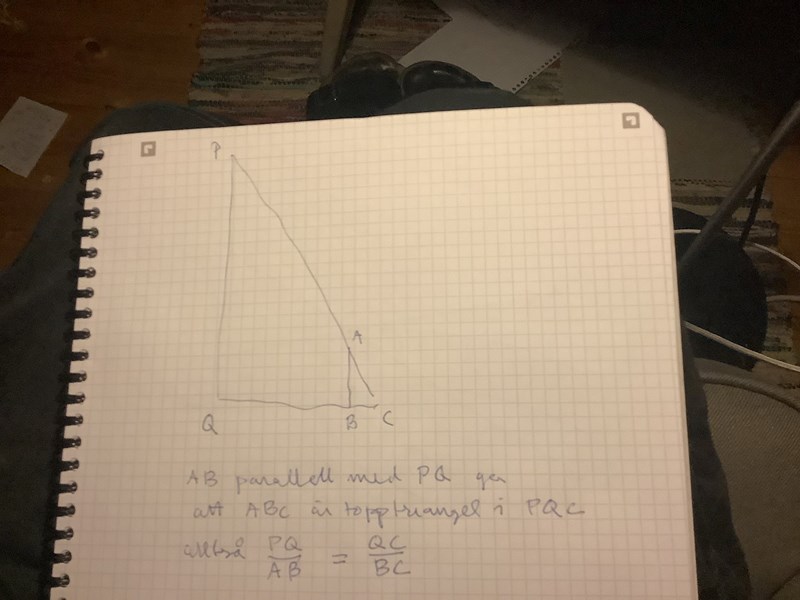 P
A
Q B C
AB parallell med PQ ger
att ABC är topptriangel i PQC
alltså PQ/AB = QC/BC